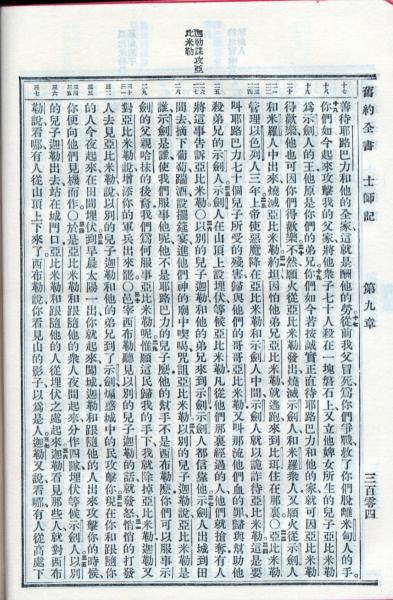 舊約全書　士師記　第九章　三百零四
迦勒謀攻亞
比米勒
善待耶路巴力和他的全家這就是酬他的勞從前我父冒死為你們爭戰救了你們脫離米甸人的手
你們如今起來攻擊我的父家將他眾子七十人殺在一塊磐石上又立他婢女所生的兒子亞比米勒
為示劍人的王他原是你們的弟兄你們如今若按誠實正直待耶路巴力和他的家就可因亞比米勒
得歡樂他也可因你們得歡樂不然願火從亞比米勒發出燒滅示劍人和米羅眾人又願火從示劍人
和米羅人中出來燒滅亞比米勒約坦因怕他弟兄亞比米勒就逃跑來到比珥住在那裏〇亞比米勒
管理以色列人三年上帝使惡魔來在亞比米勒和示劍人中間示劍人就以詭詐待亞比米勒這是要
叫耶路巴力七十個兒子所受的殘害歸與他們的哥哥亞比米勒又叫那流他們血的罪歸與幫助他
殺弟兄的示劍人示劍人在山頂上設埋伏等候亞比米勒凡從他們那裏經過的人他們就搶奪有人
將這事告訴亞比米勒〇以別的兒子迦勒和他的弟兄來到示劍示劍人都信靠他示劍人出城到田
間去摘下葡萄踹酒設擺筵宴進他們神的廟中喫喝咒詛亞比米勒以別的兒子迦勒說亞比米勒是
誰示劍是誰使我們服事他呢他不是耶路巴力的兒子麼他的幫手不是西布勒麼你們可以服事示
劍的父親哈抹的後裔我們為何服事亞比米勒呢惟願這民歸我的手下我就除掉亞比米勒迦勒又
對亞比米勒說增添你的軍兵出來罷〇邑宰西布勒聽見以別的兒子迦勒的話就發怒悄悄的打發
人去見亞比米勒說以別的兒子迦勒和他的弟兄到了示劍煽惑城中的民攻擊你現在你和跟隨你
的人今夜起來在田間埋伏到早晨太陽一出你就起來闖城迦勒和跟隨他的人出來攻擊你的時候
你便向他們見機而作〇於是亞比米勒和跟隨他的眾人夜間起來分作四隊埋伏等候示劍人以別
的兒子迦勒出去站在城門口亞比米勒和跟隨他的人從埋伏之處起來迦勒看見那些人就對西布
勒說看哪有人從山頂上下來了西布勒說你看見山的影子以為是人迦勒又說看哪有人從高處下